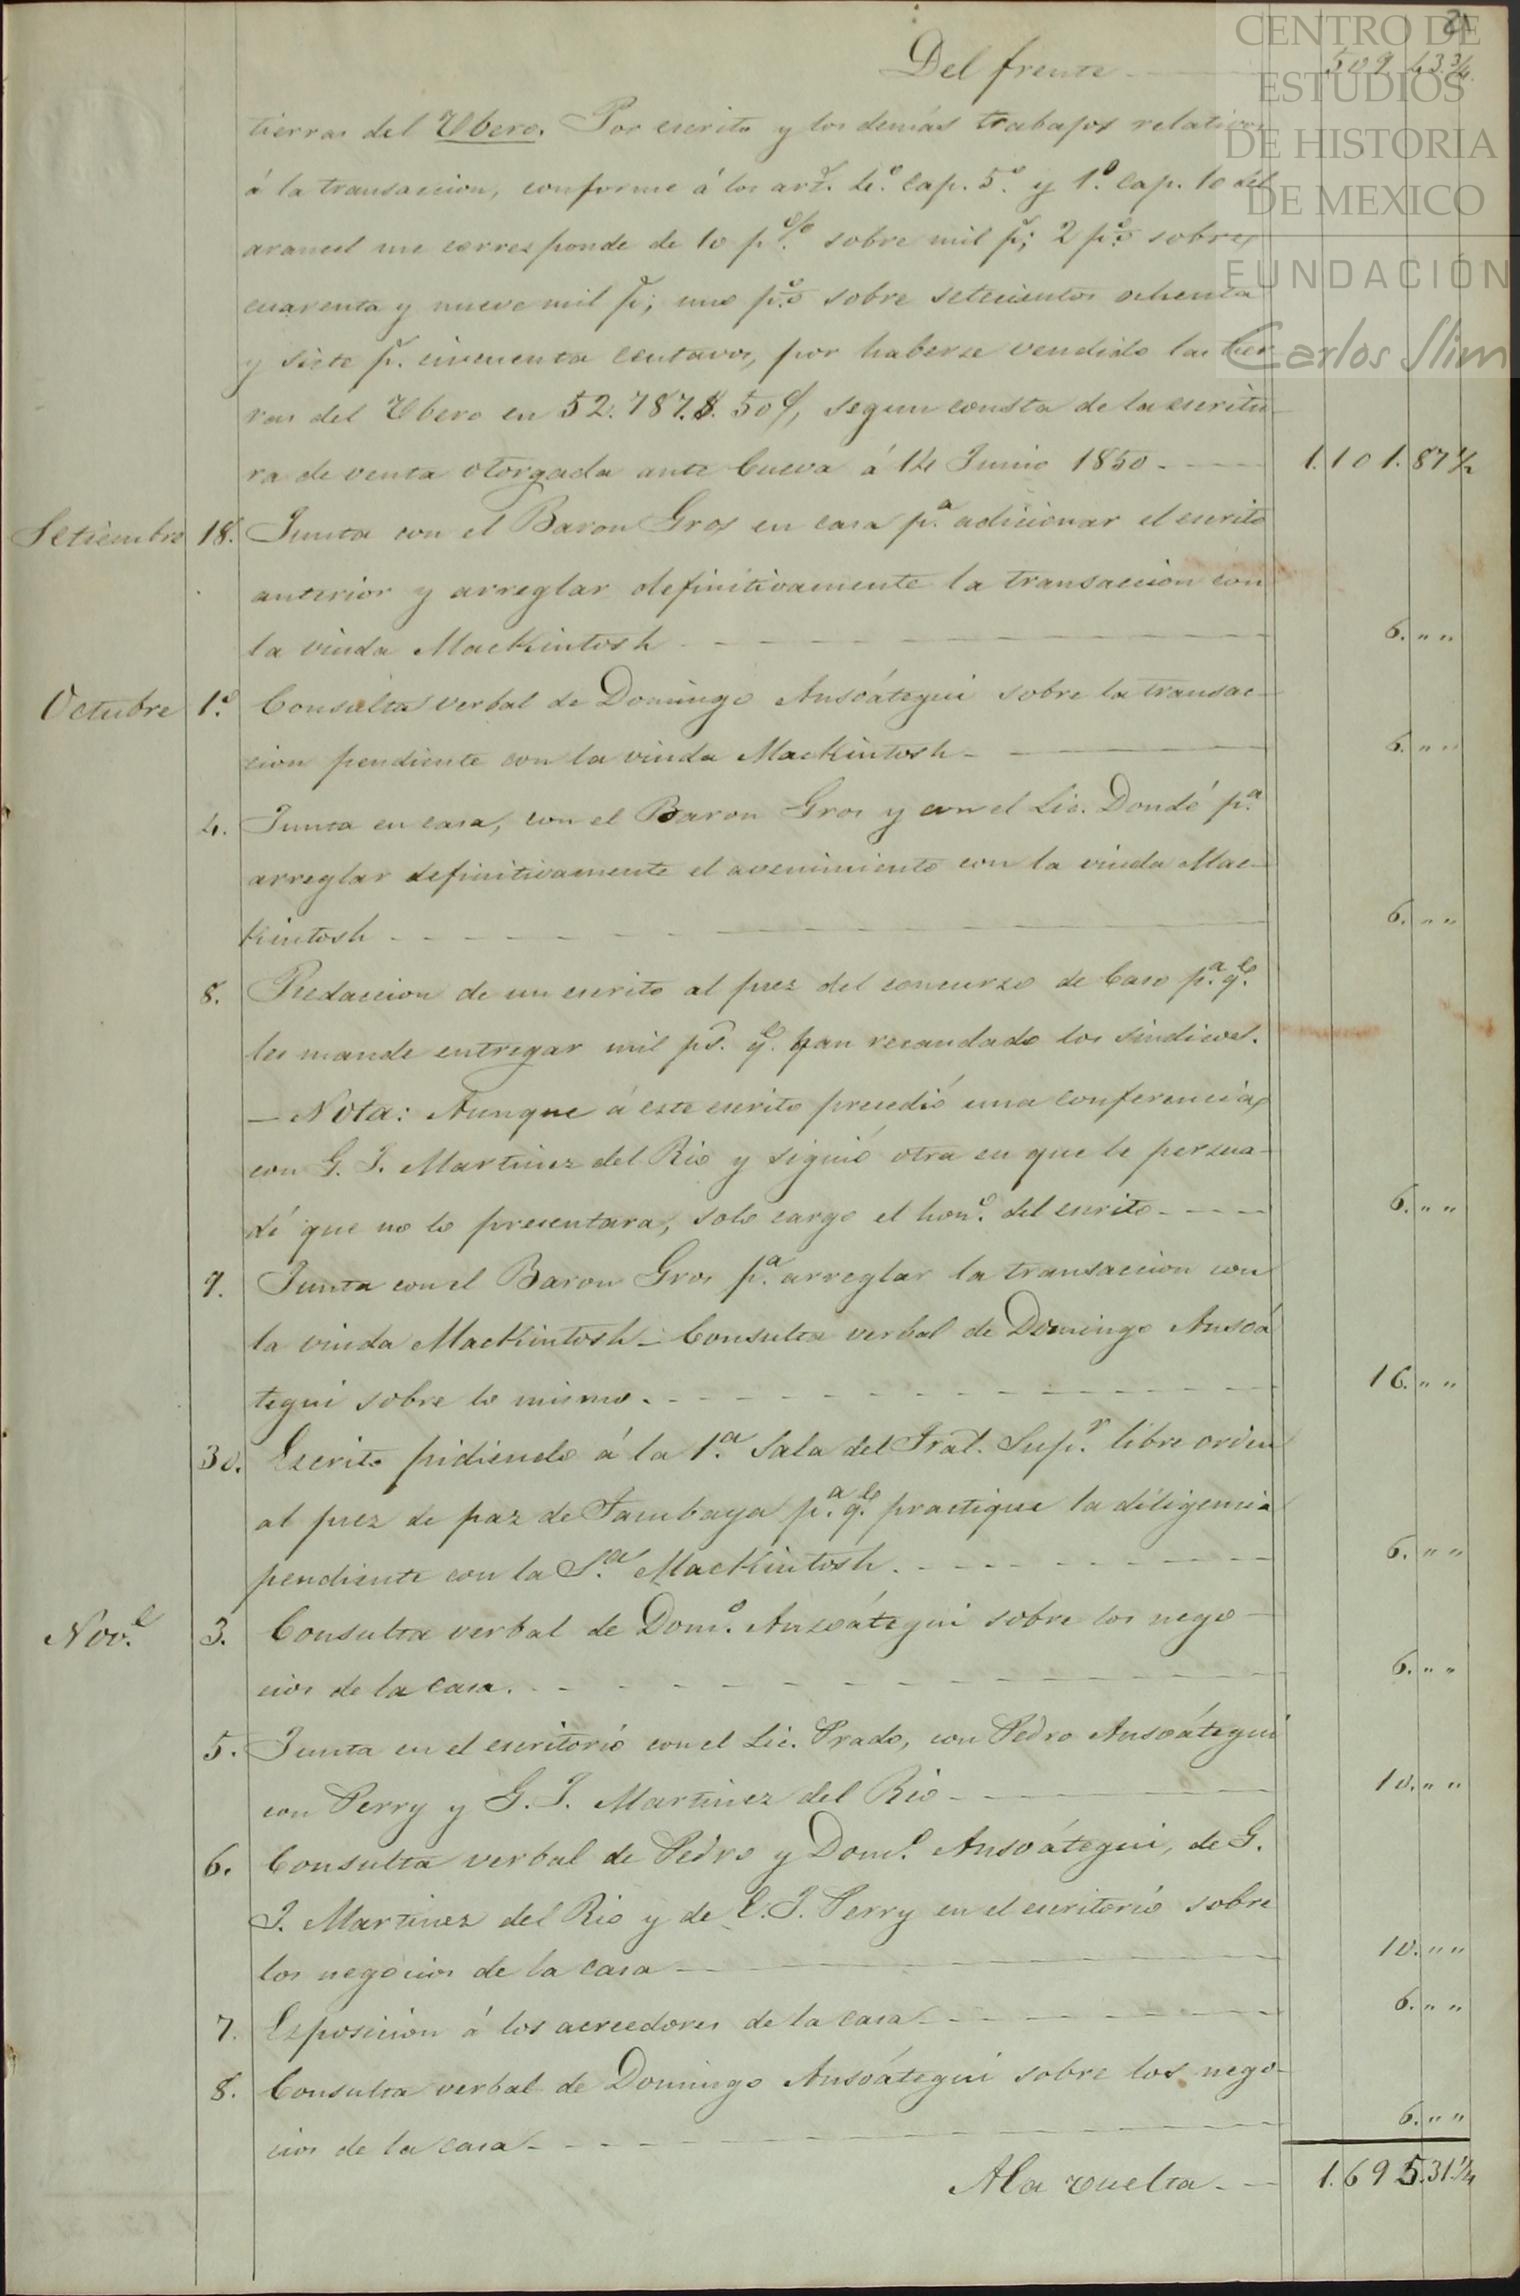 21
Del frente 509. 43 3/4.
tierras del Ubero. Por escrito y los demás trabajos relativos
á la transaccion, conforme á los art.s 4.º cap. 5.º y 1.º cap. 10 del
arancel me corresponde de 10 p.% sobre mil p.s; 2 p.% sobre
cuarenta y nueve mil p.s; uno p.% sobre setecientos ochenta
y siete p.s cincuenta centavos, por haberse vendido las tier
ras del Ubero en 52.787.$. 50 c/, segun consta de la escritu-
ra de venta otorgada ante Cueva á 14 Junio 1850. 1.101.87 1/2
Setiembre 18. Junta con el Baron Gros en casa p.a adicionar el escrito
anterior y arreglar definitivamente la transaccion con
la viuda MacKintosh 6. " "
Octubre 1.º Consulta verbal de Domingo Ansoátegui sobre la transac-
cion pendiente con la viuda MacKintosh 6. " "
4. Junta en casa, con el Baron Gros y con el Lic. Dondé p.a
arreglar definitivamente el avenimiento con la viuda Mac-
Kintosh 6. " "
8. Redaccion de un escrito al juez del concurso de Caso p.a q.e
les mande entregar mil ps. q.e han recaudado los síndicos.
— Nota: Aunque á este escrito precedió una conferencia
con G. J. Martinez del Rio y siguió otra en que le persua-
dí que no lo presentara, solo cargo el hon.o del escrito 6. " "
9. Junta con el Baron Gros p.a arreglar la transaccion con
la viuda MacKintosh – Consulta verbal de Domingo Ansoá
tegui sobre lo mismo. 16. " "
30. Escrito pidiendo á la 1.a Sala del Tral. Sup.r libre orden
al juez de paz de Tacubaya p.a q.e practique la diligencia
pendiente con la S.a MacKintosh. 6. " "
Nov.e 3. Consulta verbal de Dom.o Anzoátegui sobre los nego-
cios de la casa. 6. " "
5. Junta en el escritorió con el Lic. Prado, con Pedro Ansoátegui
con Perry y G. J. Martinez del Rio 10. " "
6. Consulta verbal de Pedro y Dom.o Ansoátegui, de G.
J. Martinez del Rio y de E. J. Perry en el escritorió sobre
los negocios de la casa 10. " "
7. Esposicion á los acreedores de la casa 6. " "
8. Consulta verbal de Domingo Ansoátegui sobre los nego-
cios de la casa 6. " "
A la vuelta 1.695.31 1/4
CENTRO DE
ESTUDIOS
DE HISTORIA
DE MEXICO
FUNDACIÓN
Carlos Slim